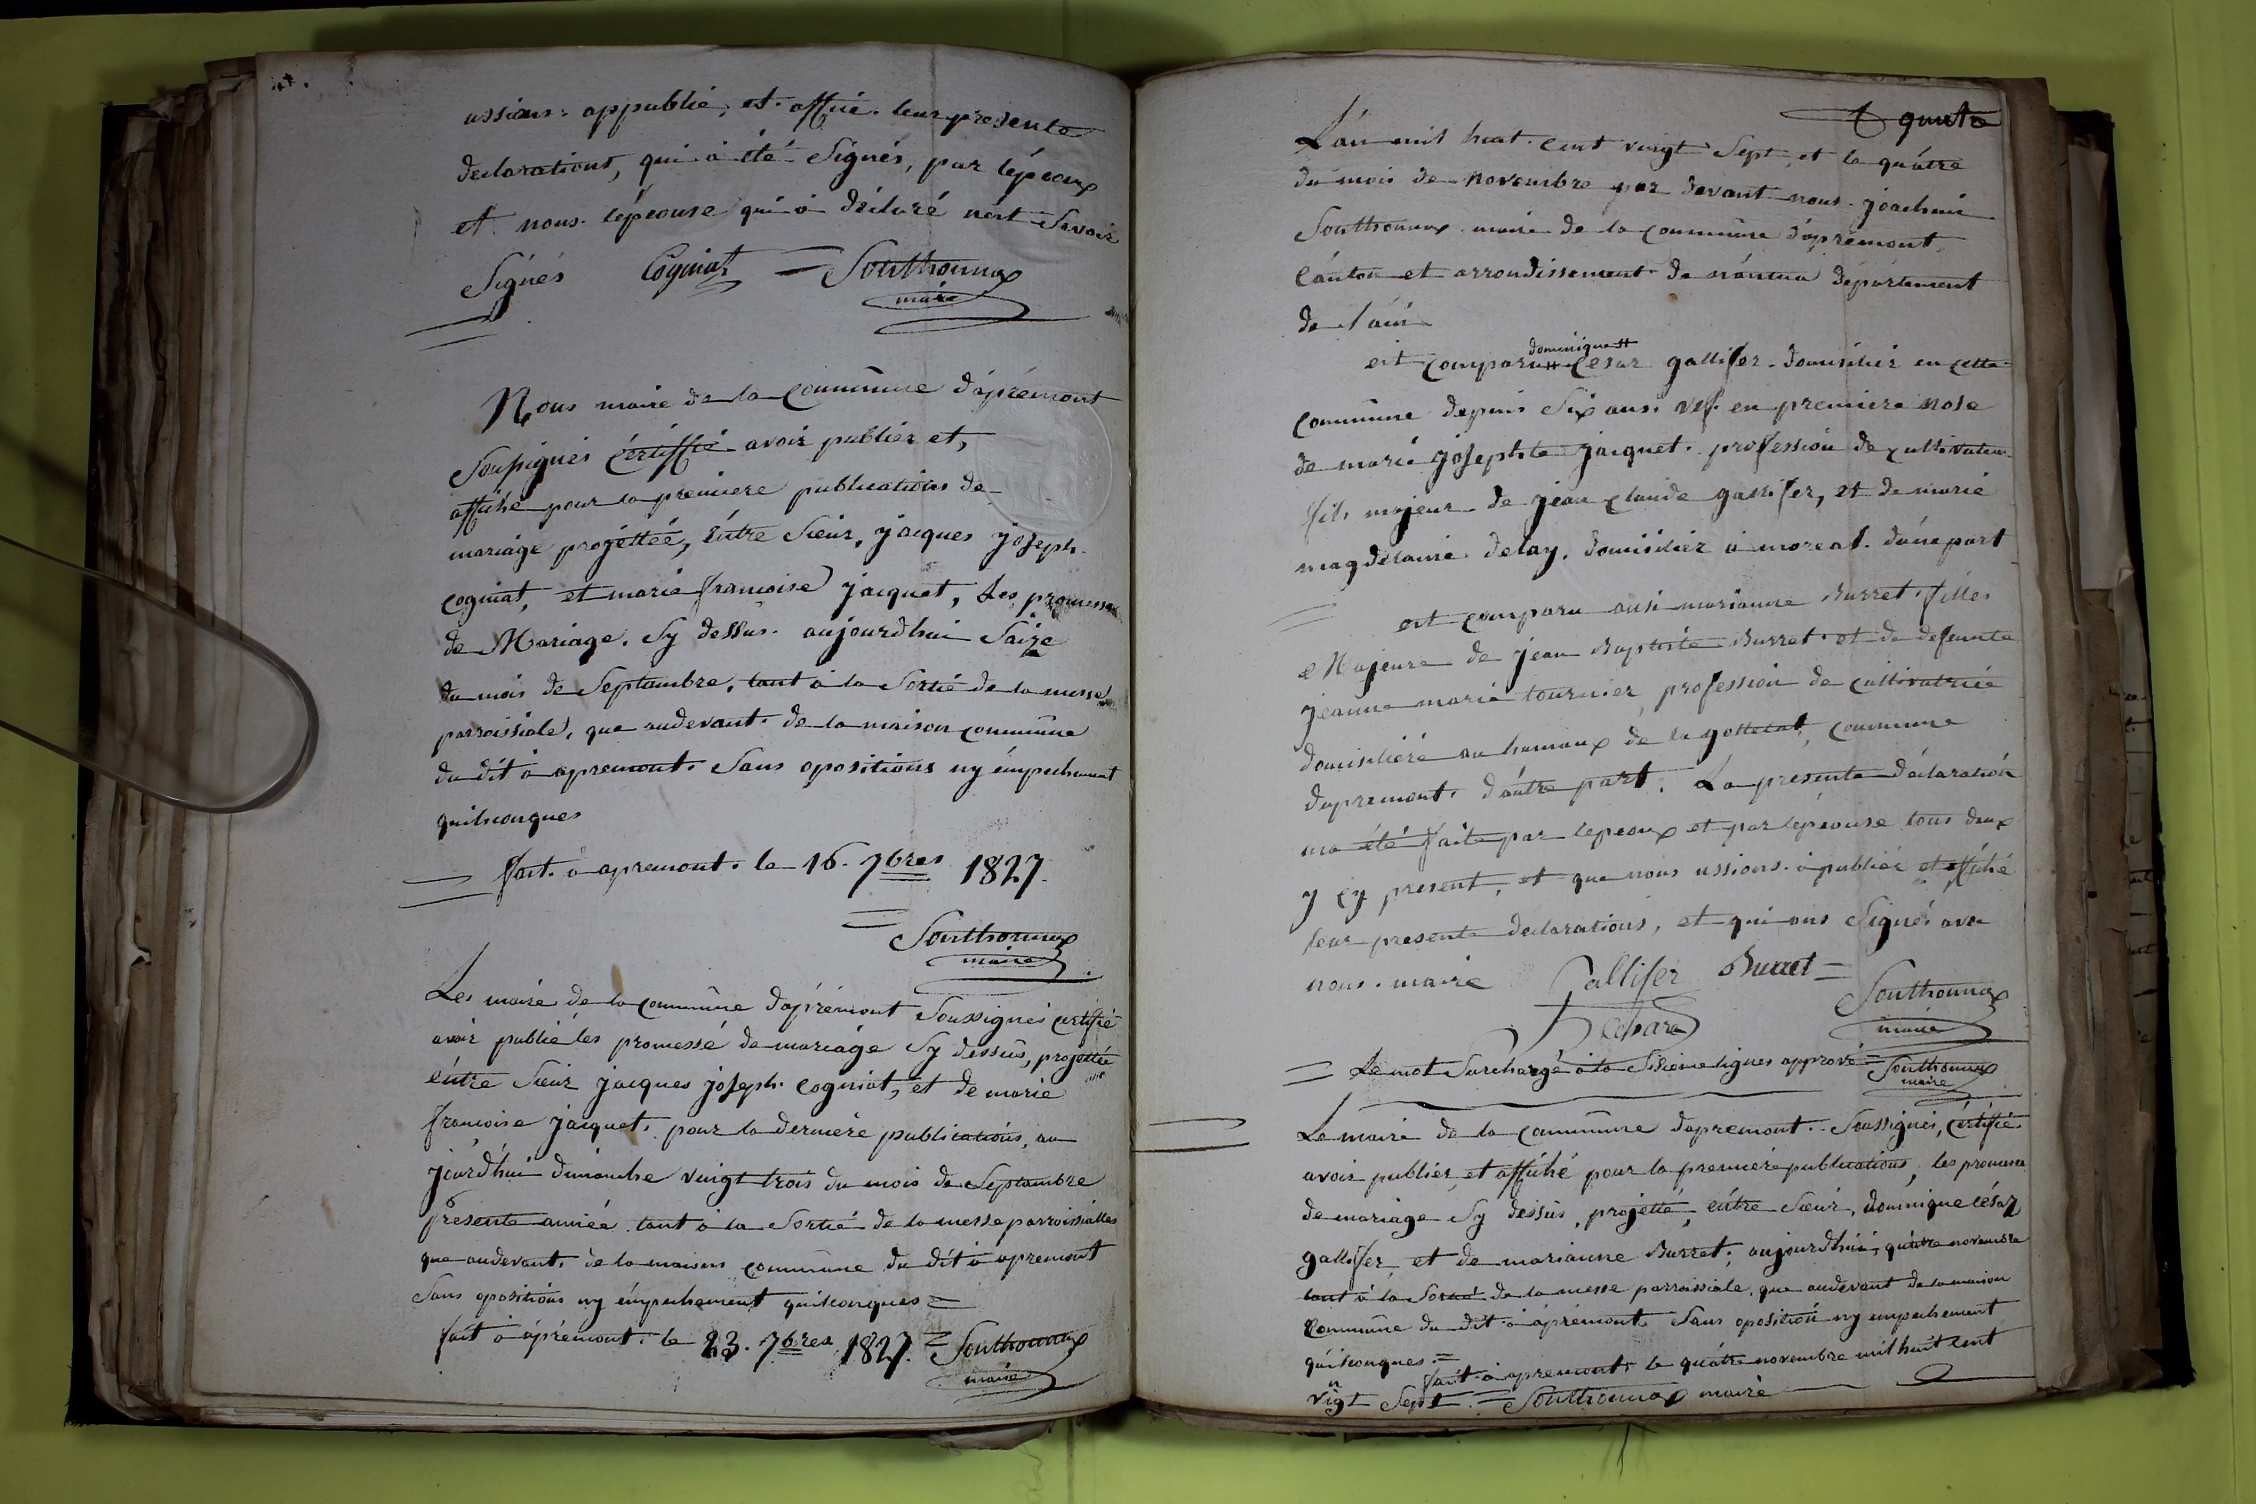 ussions appublié, et affiié leur presente
declarations, qui à été Signés, par lépeoux
et nous lépeouse qui à déclaré nest Savoir
Signés Cogniat = Southonnax
maire
Nous maire de la Commûnne d'àprémont
Soussignés Cértiffié avoir publiér et,
affiché pour la premiere publications de
mariáge projéttéé, Éntre Sieur, jacques joseph
cogniat, et marie francoise jacquet, Les promesse
de Mariage, Sy dessus aujourdhui Saize
du mois de Septambre, tant à la Sortié de la messe
parroissiale, que audevant de la maison commûnne
du dit à apremont. Sans opositions ny émpechement
quilsconques
fait à apremont. le 16. 7bres 1827.
Southonnax
maire
Les maire de la Commûnne d'àprémont Soussignés certifié
avoir publié les promessé de mariáge Sy dessus, projettée
éntre Sieur jacques joseph cogniat, et de marie
francoise jacquet, pour la derniere publications, au
jourd'hui dimanche vingt trois du mois de Septambre
Présente année tant à la Sortié de la messe parroissialles
que audevant, de la maisons commûnne du dit à apremont
Sans opositions ny émpechement quilsconques =
fait à àprémont. le 23. 7bres 1827. = Southonnax
maire
L'an mil huit cent vingt Sept, et le quátre
du mois de novembre par devant nous joachim
Southonnax maire de la Commûnne d'àprémont,
Cánton et arrondissement de nántua département
de l'ain
dominique #
est Comparu # César gallifer domicilier en cette
commûnne depuis Six ans. vef en premiere nose
de marie josephte jacquet. profession de cultivateur
fils majeur de jean claude gallifer, et de marie
magdelaine delay, domicilier à moreal. dúne part
est comparu ausi marianne Burret filles
Majeure de jean Baptiste Burret et de defeunte
jeanne marie tournier, profession de cultivatrice
domiciliéré au hamaux de la gottetat, commune
dapremont, d'áutre part. La présente déclaration
ma été faite par lepeoux et par lépeouse tous deux
y cy présent, et que nous ussions à publiér et affiché
leur presente declarations, et qui ons Signés avec
nous maire Gallifer Burret =
Cesar Southonnax
maire
= Le mot Surchargé à la Sixieme lignes apprové = Southonnax
maire
Le mairé de la Commûnne dapremont. Soussignés, Cértifié
avoir publiér et affiché pour la premiére publications, les promesse
de mariage Sy dessus, projetté, éntre Sieur, dominique César
gallifer et de marianne Burret, aujourdhui, quátre novembre
tant à la Sortié de la messe parroissiale, que audevant de la maison
Commûnne du dit à àprémont. Sans oposition ny empechement
quilconques. =
fait à apremont, le quátre novembre mil huit cent
vigt Sept. = Southonnax mairé